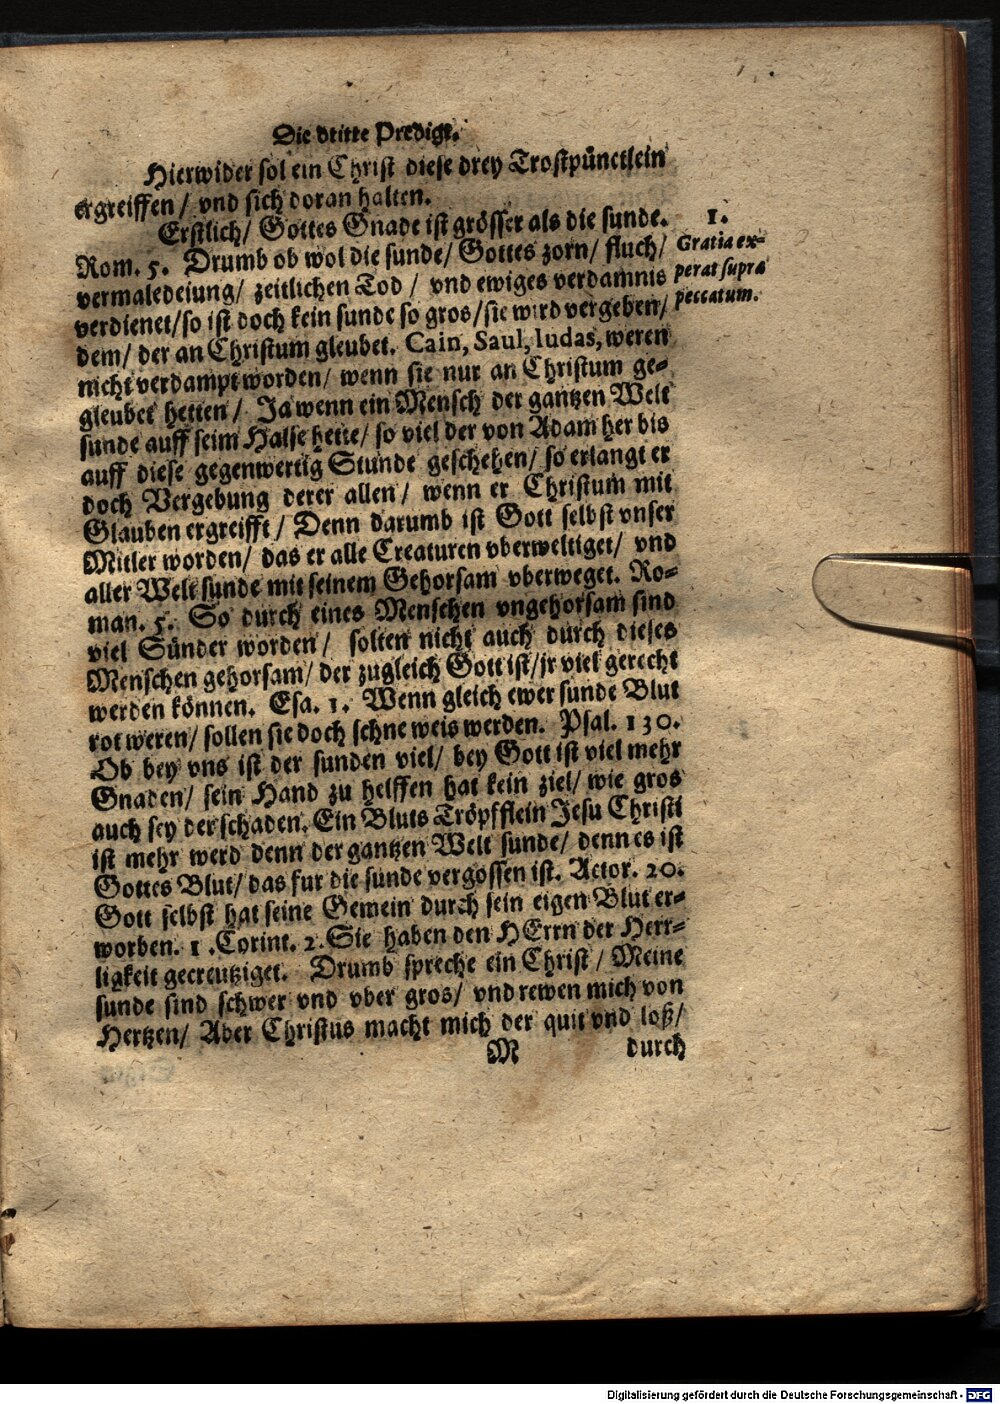 Die dtitte Predigt.
Hierwider sol ein Christ diese drey Trostpünctlein
ergreiffen / vnd sich doran halten.
Erstlich / Gottes Gnade ist grösser als die sunde.
Rom. 5. Drumb ob wol die sunde / Gottes zorn / fluch /
vermaledeiung / zeitlichen Tod / vnd ewiges verdamnis
verdienet / so ist doch kein sunde so gros / sie wird vergeben /
dem / der an Christum gleubet. Cain, Saul, Iudas, weren
nicht verdampt worden / wenn sie nur an Christum ge-
gleubet hetten / Ja wenn ein Mensch der gantzen Welt
sunde auff seim Halse hette / so viel der von Adam her bis
auff diese gegenwertig Stunde geschehen / so erlangt er
doch Vergebung derer allen / wenn er Christum mit
Glauben ergreifft / Denn darumb ist Gott selbst vnser
Mitler worden / das er alle Creaturen vberweltiget / vnd
aller Welt sunde mit seinem Gehorsam vberweget. Ro-
man. 5. So durch eines Menschen vngehorsam sind
viel Sünder worden / solten nicht auch durch dieses
Menschen gehorsam / der zugleich Gott ist / jr viel gerecht
werden können. Esa. 1. Wenn gleich ewer sunde Blut
rot weren / sollen sie doch schne weis werden. Psal. 130.
Ob bey vns ist der sunden viel / bey Gott ist viel mehr
Gnaden / sein Hand zu helffen hat kein ziel / wie gros
auch sey der schaden. Ein Bluts Tröpfflein Jesu Christi
ist mehr werd denn der gantzen Welt sunde / denn es ist
Gottes Blut / das fur die sunde vergossen ist. Actor. 20.
Gott selbst hat seine Gemein durch sein eigen Blut er-
worben. 1. Corint. 2. Sie haben den HErrn der Herr-
ligkeit gecreutziget. Drumb spreche ein Christ / Meine
sunde sind schwer vnd vber gros / vnd rewen mich von
Hertzen / Aber Christus macht mich der quit vnd loß /
M durch
1.
Gratia ex-
perat supra
peccatum.
Digitalisierung gefördert durch die Deutsche Forschungsgemeinschaft - DFG